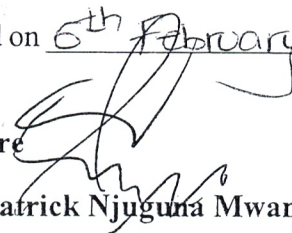 on 6th February
re
atrick Njuguna Mwan